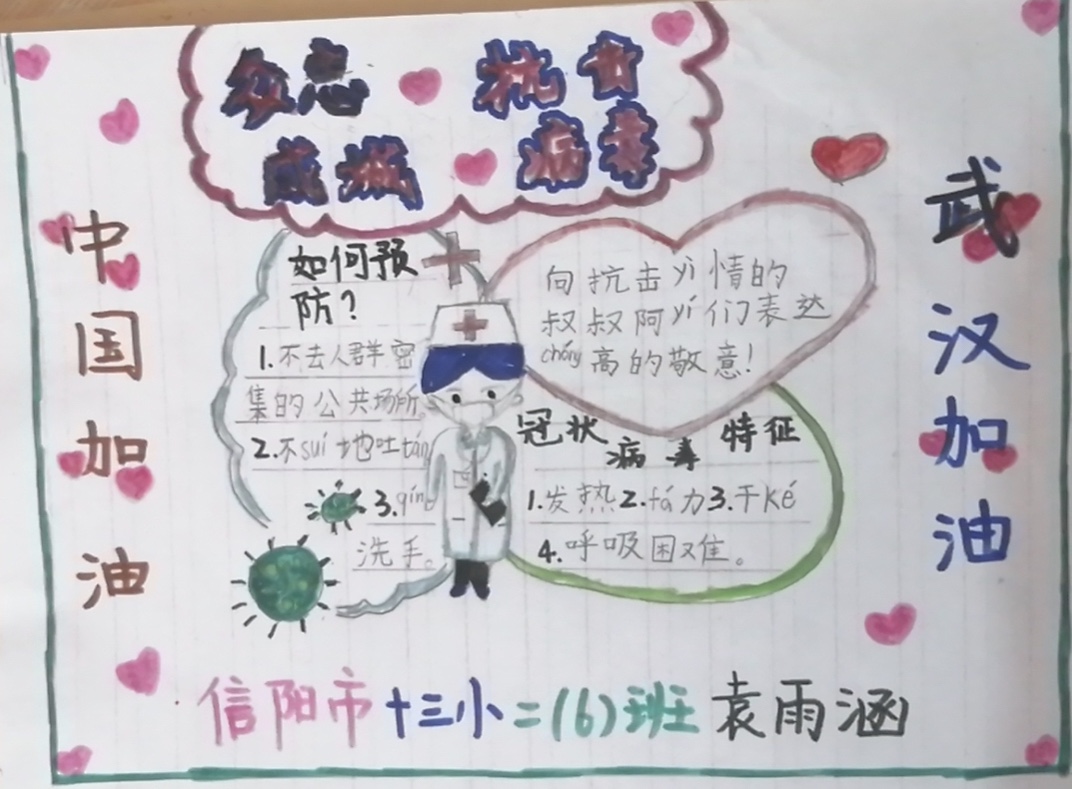 众志 抗击
成城 病毒
中国加油
武汉加油
如何预
防？
1.不去人群密
集的公共场所。
2.不suí地吐tán
3.qín
洗手。
向抗击yì情的
叔叔阿yí们表达
chóng高的敬意！
冠状病毒特征
1.发热2.fá力3.干ké
4.呼吸困难。
信阳市十三小二(6)班袁雨涵